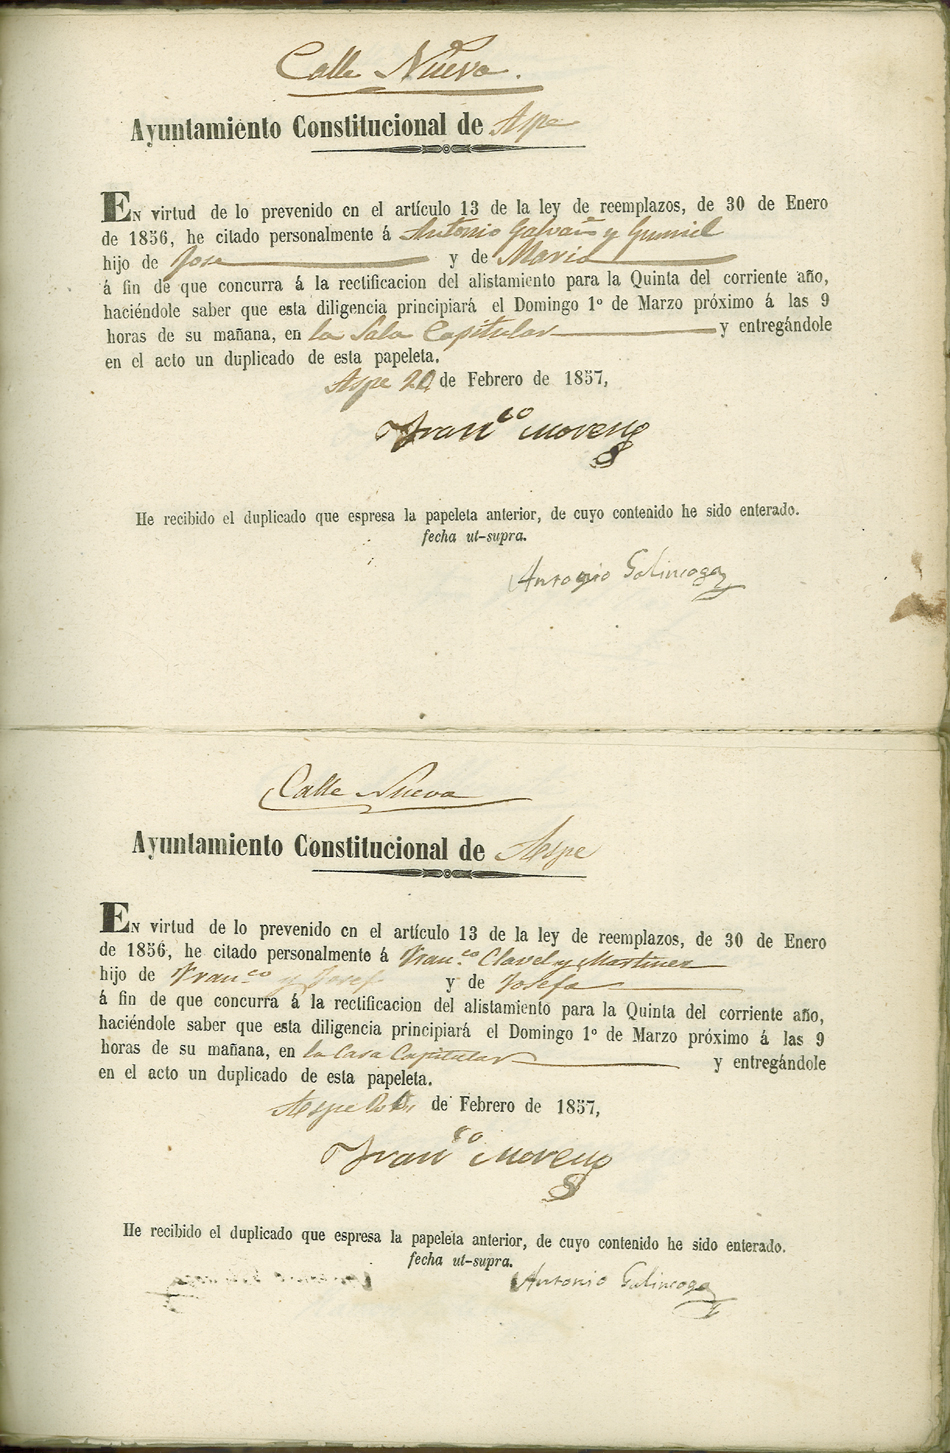 Calle Nueva.
Ayuntamiento Constitucional de Aspe
En virtud de lo prevenido en el artículo 13 de la ley de reemplazos, de 30 de Enero
de 1856, he citado personalmente á Antonio Galvañ y Gumiel
hijo de Jose y de Maria
á fin de que concurra á la rectificacion del alistamiento para la Quinta del corriente año,
haciéndole saber que esta diligencia principiará el Domingo 1º de Marzo próximo á las 9
horas de su mañana, en la Sala Capitular y entregándole
en el acto un duplicado de esta papeleta.
Aspe de Febrero de 1857,
Franco Moreno
He recibido el duplicado que espresa la papeleta anterior, de cuyo contenido he sido enterado.
fecha ut-supra.
Antonio Galinsoga
Calle Nueva
Ayuntamiento Constitucional de Aspe
En virtud de lo prevenido en el artículo 13 de la ley de reemplazos, de 30 de Enero
de 1856, he citado personalmente á Franco Clavel y Martinez
hijo de Franco y de Josefa
á fin de que concurra á la rectificacion del alistamiento para la Quinta del corriente año,
haciéndole saber que esta diligencia principiará el Domingo 1º de Marzo próximo á las 9
horas de su mañana, en la Casa Capitular y entregándole
en el acto un duplicado de esta papeleta.
de Febrero de 1857,
Franco Moreno
He recibido el duplicado que espresa la papeleta anterior, de cuyo contenido he sido enterado.
fecha ut-supra.
Antonio Galinsoga